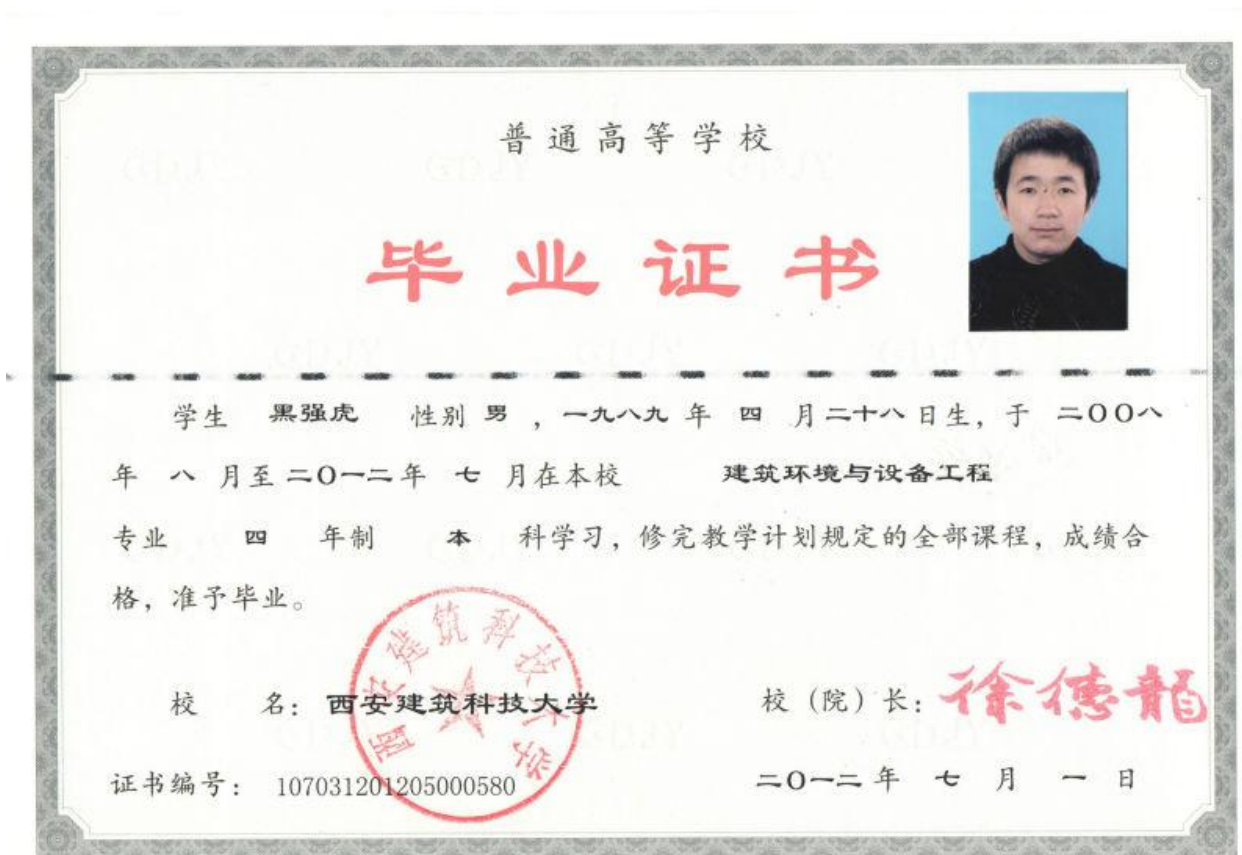 普通高等学校
毕业证书
学生 黑强虎 性别 男 ，一九八九 年 四 月二十八日生，于 二〇〇八
年 八 月至二〇一二年 七 月在本校 建筑环境与设备工程
专业 四 年制 本 科学习，修完教学计划规定的全部课程，成绩合
格，准予毕业。
西安建筑科技大学
校 名：西安建筑科技大学 校（院）长：徐德龙
证书编号： 107031201205000580 二〇一二年 七 月 一 日